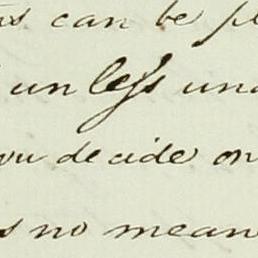 can be
unless
you decide on
no mean